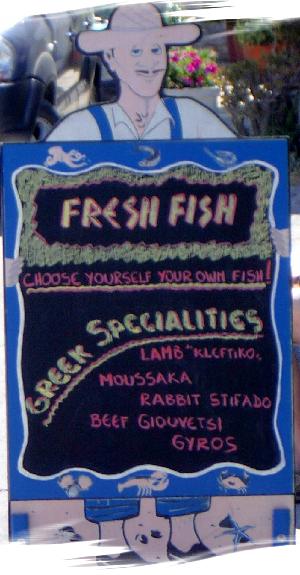 FRESH FISH
CHOOSE YOURSELF YOUR OWN FISH!
GREEK SPECIALITIES
LAMB "KLEFTIKO"
MOUSSAKA
RABBIT STIFADO
BEEF GIOUVETSI
GYROS